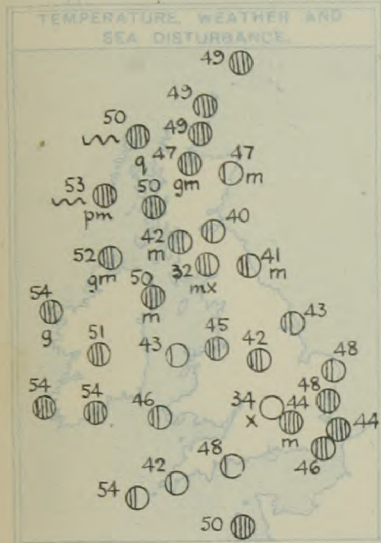 TEMPERATURE, WEATHER AND
SEA DISTURBANCE.
49
49
50
49
q 47 47
gm m
53 50
pm
40
42
m
52 32 41
gm mx m
50
m
54
g
43
51 43 45 42
48
48
54 54 46 34 44 44
x m
46
48
42
54
50